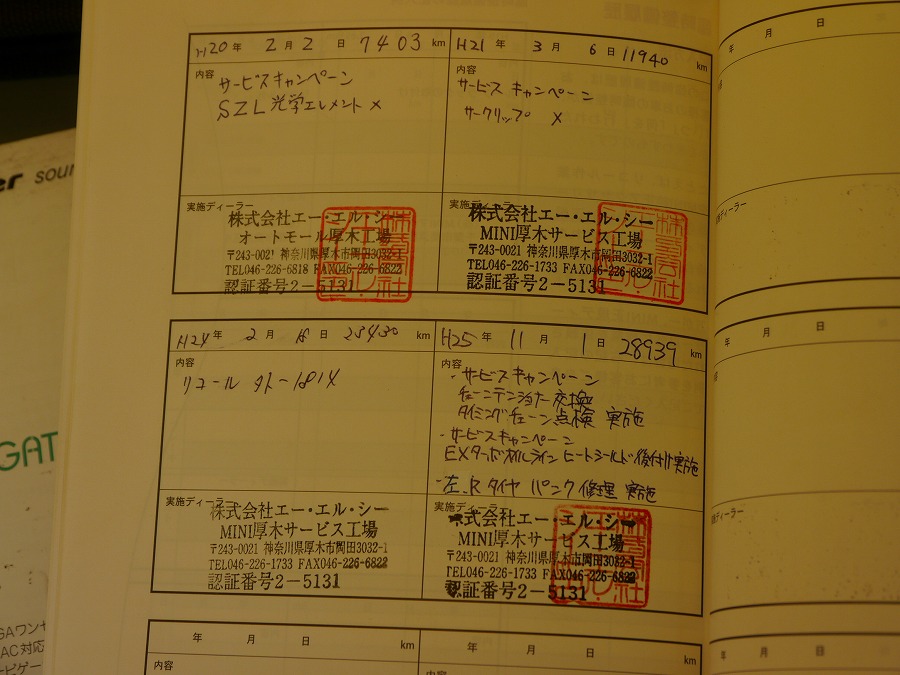 H20年 2月 2日 7403 km
内容
サービスキャンペーン
SZL 光学エレメント ×
実施ディーラー
株式会社エー・エル・シー
オートモール厚木工場
〒243-0021 神奈川県厚木市岡田3032-1
TEL046-226-6818 FAX046-226-6822
認証番号2-5131
H21年 3月 6日 11940 km
内容
サービスキャンペーン
サークリップ ×
実施ディーラー
株式会社エー・エル・シー
MINI厚木サービス工場
〒243-0021 神奈川県厚木市岡田3032-1
TEL046-226-1733 FAX046-226-6822
認証番号2-5131
H24年 2月 18日 23430 km
内容
リコール
実施ディーラー
株式会社エー・エル・シー
MINI厚木サービス工場
〒243-0021 神奈川県厚木市岡田3032-1
TEL046-226-1733 FAX046-226-6822
認証番号2-5131
H25年 11月 1日 28939 km
内容
・サービスキャンペーン
チェーンテンショナー交換
タイミングチェーン点検 実施
・サービスキャンペーン
EXターボオイルライン ヒートシールド後付け実施
・左.R タイヤ パンク修理 実施
実施ディーラー
式会社エー・エル・シー
MINI厚木サービス工場
〒243-0021 神奈川県厚木市岡田3032-1
TEL046-226-1733 FAX046-226-6822
認証番号2-5131
年 月 日 km
内容
年 月 日 km
内容
年 月 日
ディーラー
年 月 日
ディーラー
年 月 日
er sour
GAT
GAワンセ
AC対応